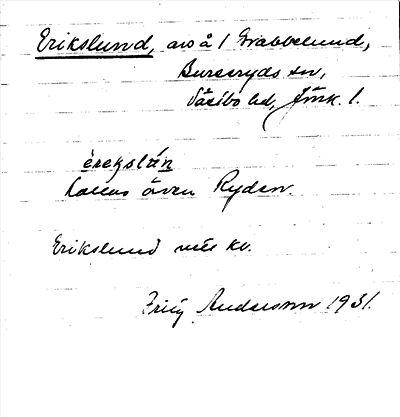 Erikslund, avs å 1 Grabbelund,
Bureryds sn,
Västbo hd, Jönk. l.
èrekslán
kallas även Ryden.
Erikslund enl. kv.
Fritz Andersson 1931.